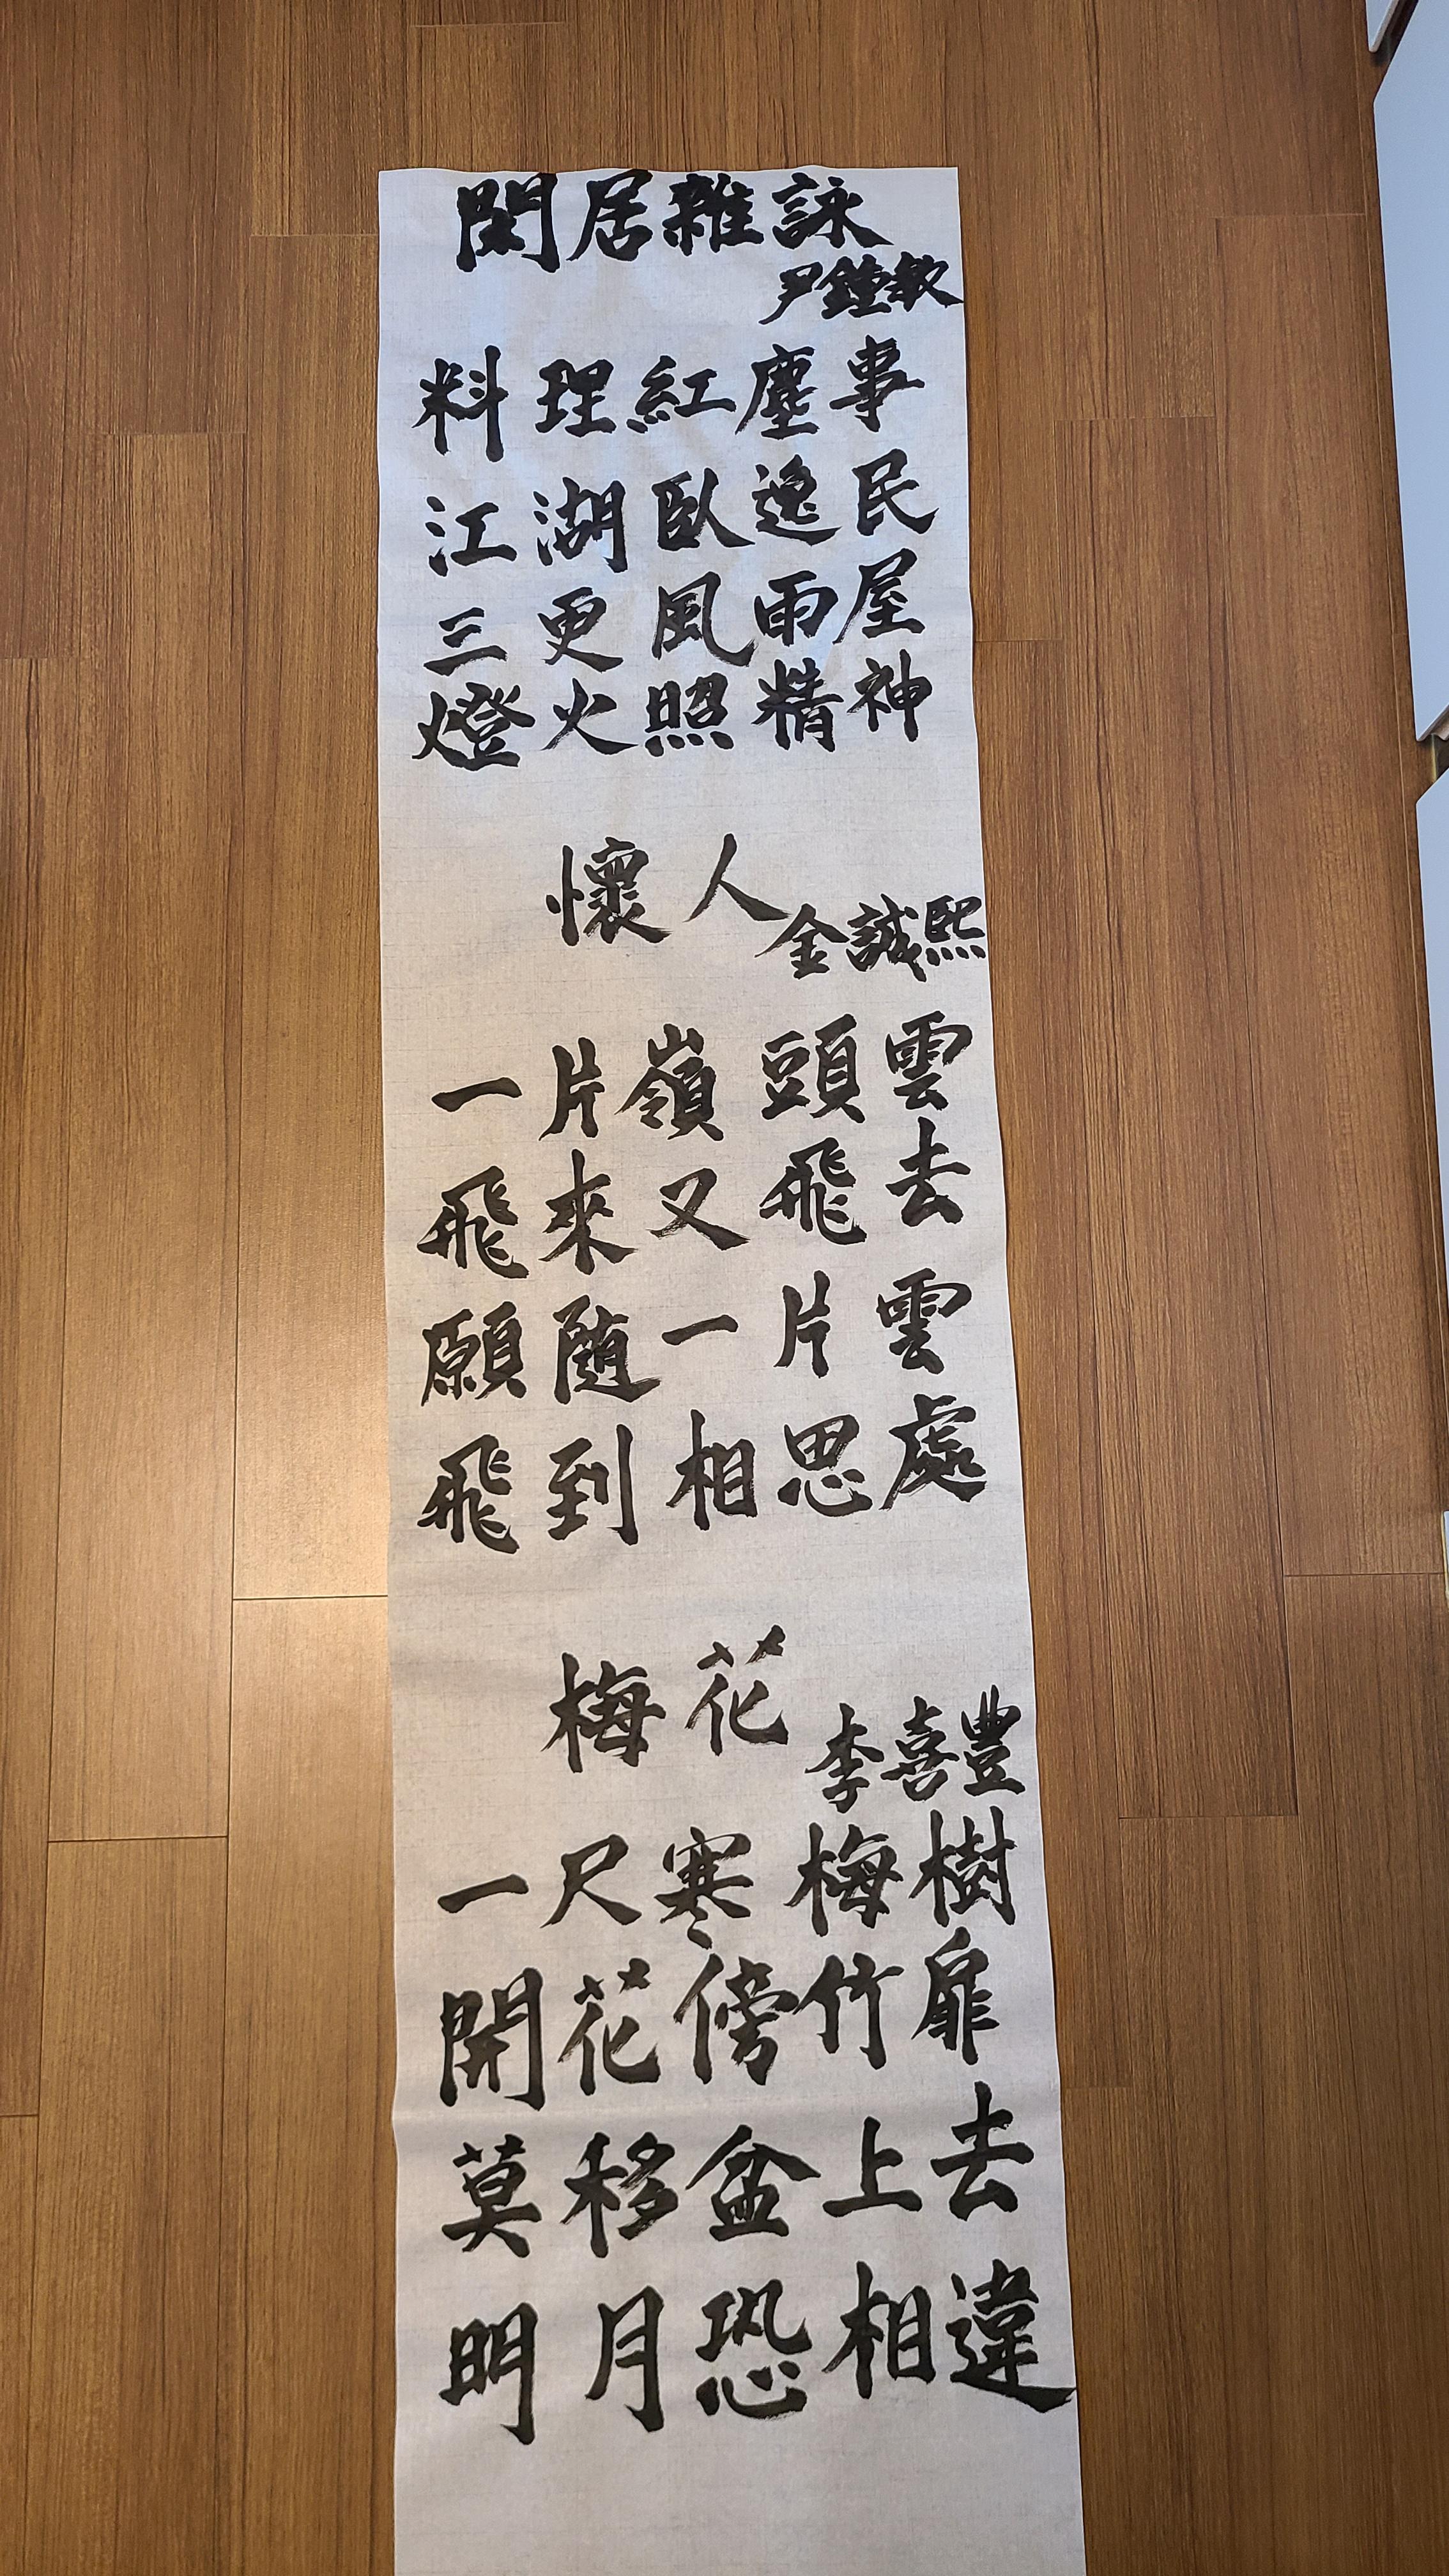 閑居雜詠
尹鐘敏
料理紅塵事
江湖臥逸民
三更風雨屋
燈火照精神
懷人
金誠熙
一片嶺頭雲
飛來又飛去
願随一片雲
飛到相思處
梅花
李喜豐
一尺寒梅樹
開花傍竹扉
莫移盆上去
明月恐相違